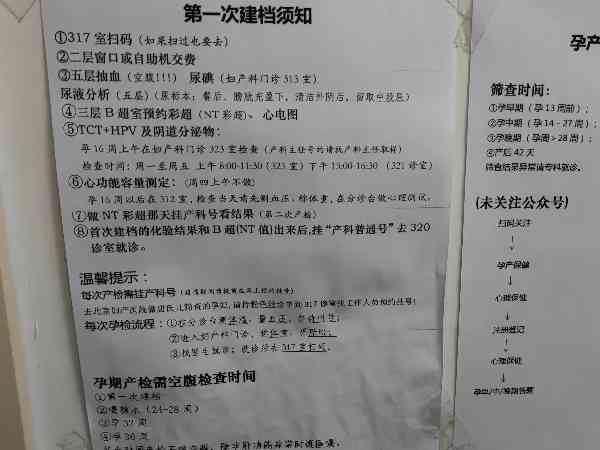 第一次建档须知
①317室扫码（如果扫过也要去）
②二层窗口或自助机交费
③五层抽血（空腹!!!）尿碘（妇产科门诊313室）
尿液分析（五层）（尿标本：餐后、膀胱充盈下，清洁外阴后，留取中段尿）
④三层B超室预约彩超（NT彩超）、心电图
⑤TCT+HPV及阴道分泌物：
孕16周上午在妇产科门诊323室检查（产科主任号的请找产科主任取样）
检查时间：周一至周五 上午8:00-11:30(323室)下午13:00-16:30（321诊室）
⑥心功能容量测定：（周四上午不做）
孕16周以后在312室，检查当天需先测血压、称体重，在分诊台做心理测试。
⑦做NT彩超那天挂产科号看结果（第二次产检）
⑧首次建档的化验结果和B超(NT值)出来后，挂“产科普通号”去320
诊室就诊。
温馨提示：
每次产检需挂产科号
每次孕检流程：
③找医生就诊；就诊后去317室扫码。
孕期产检需空腹检查时间
①第一次建档
②糖筛水（24-28周）
③孕32周
④孕36周
孕产
筛查时间：
①孕早期（孕13周前）；
②孕中期（孕14－27周）；
③孕晚期（孕周＞28周）；
④产后42天
筛查结果异常请专科就诊。
(未关注公众号)
扫码关注
↓
孕产保健
↓
心理保健
↓
注册登记
↓
心理保健
↓
孕早/中/晚期答题